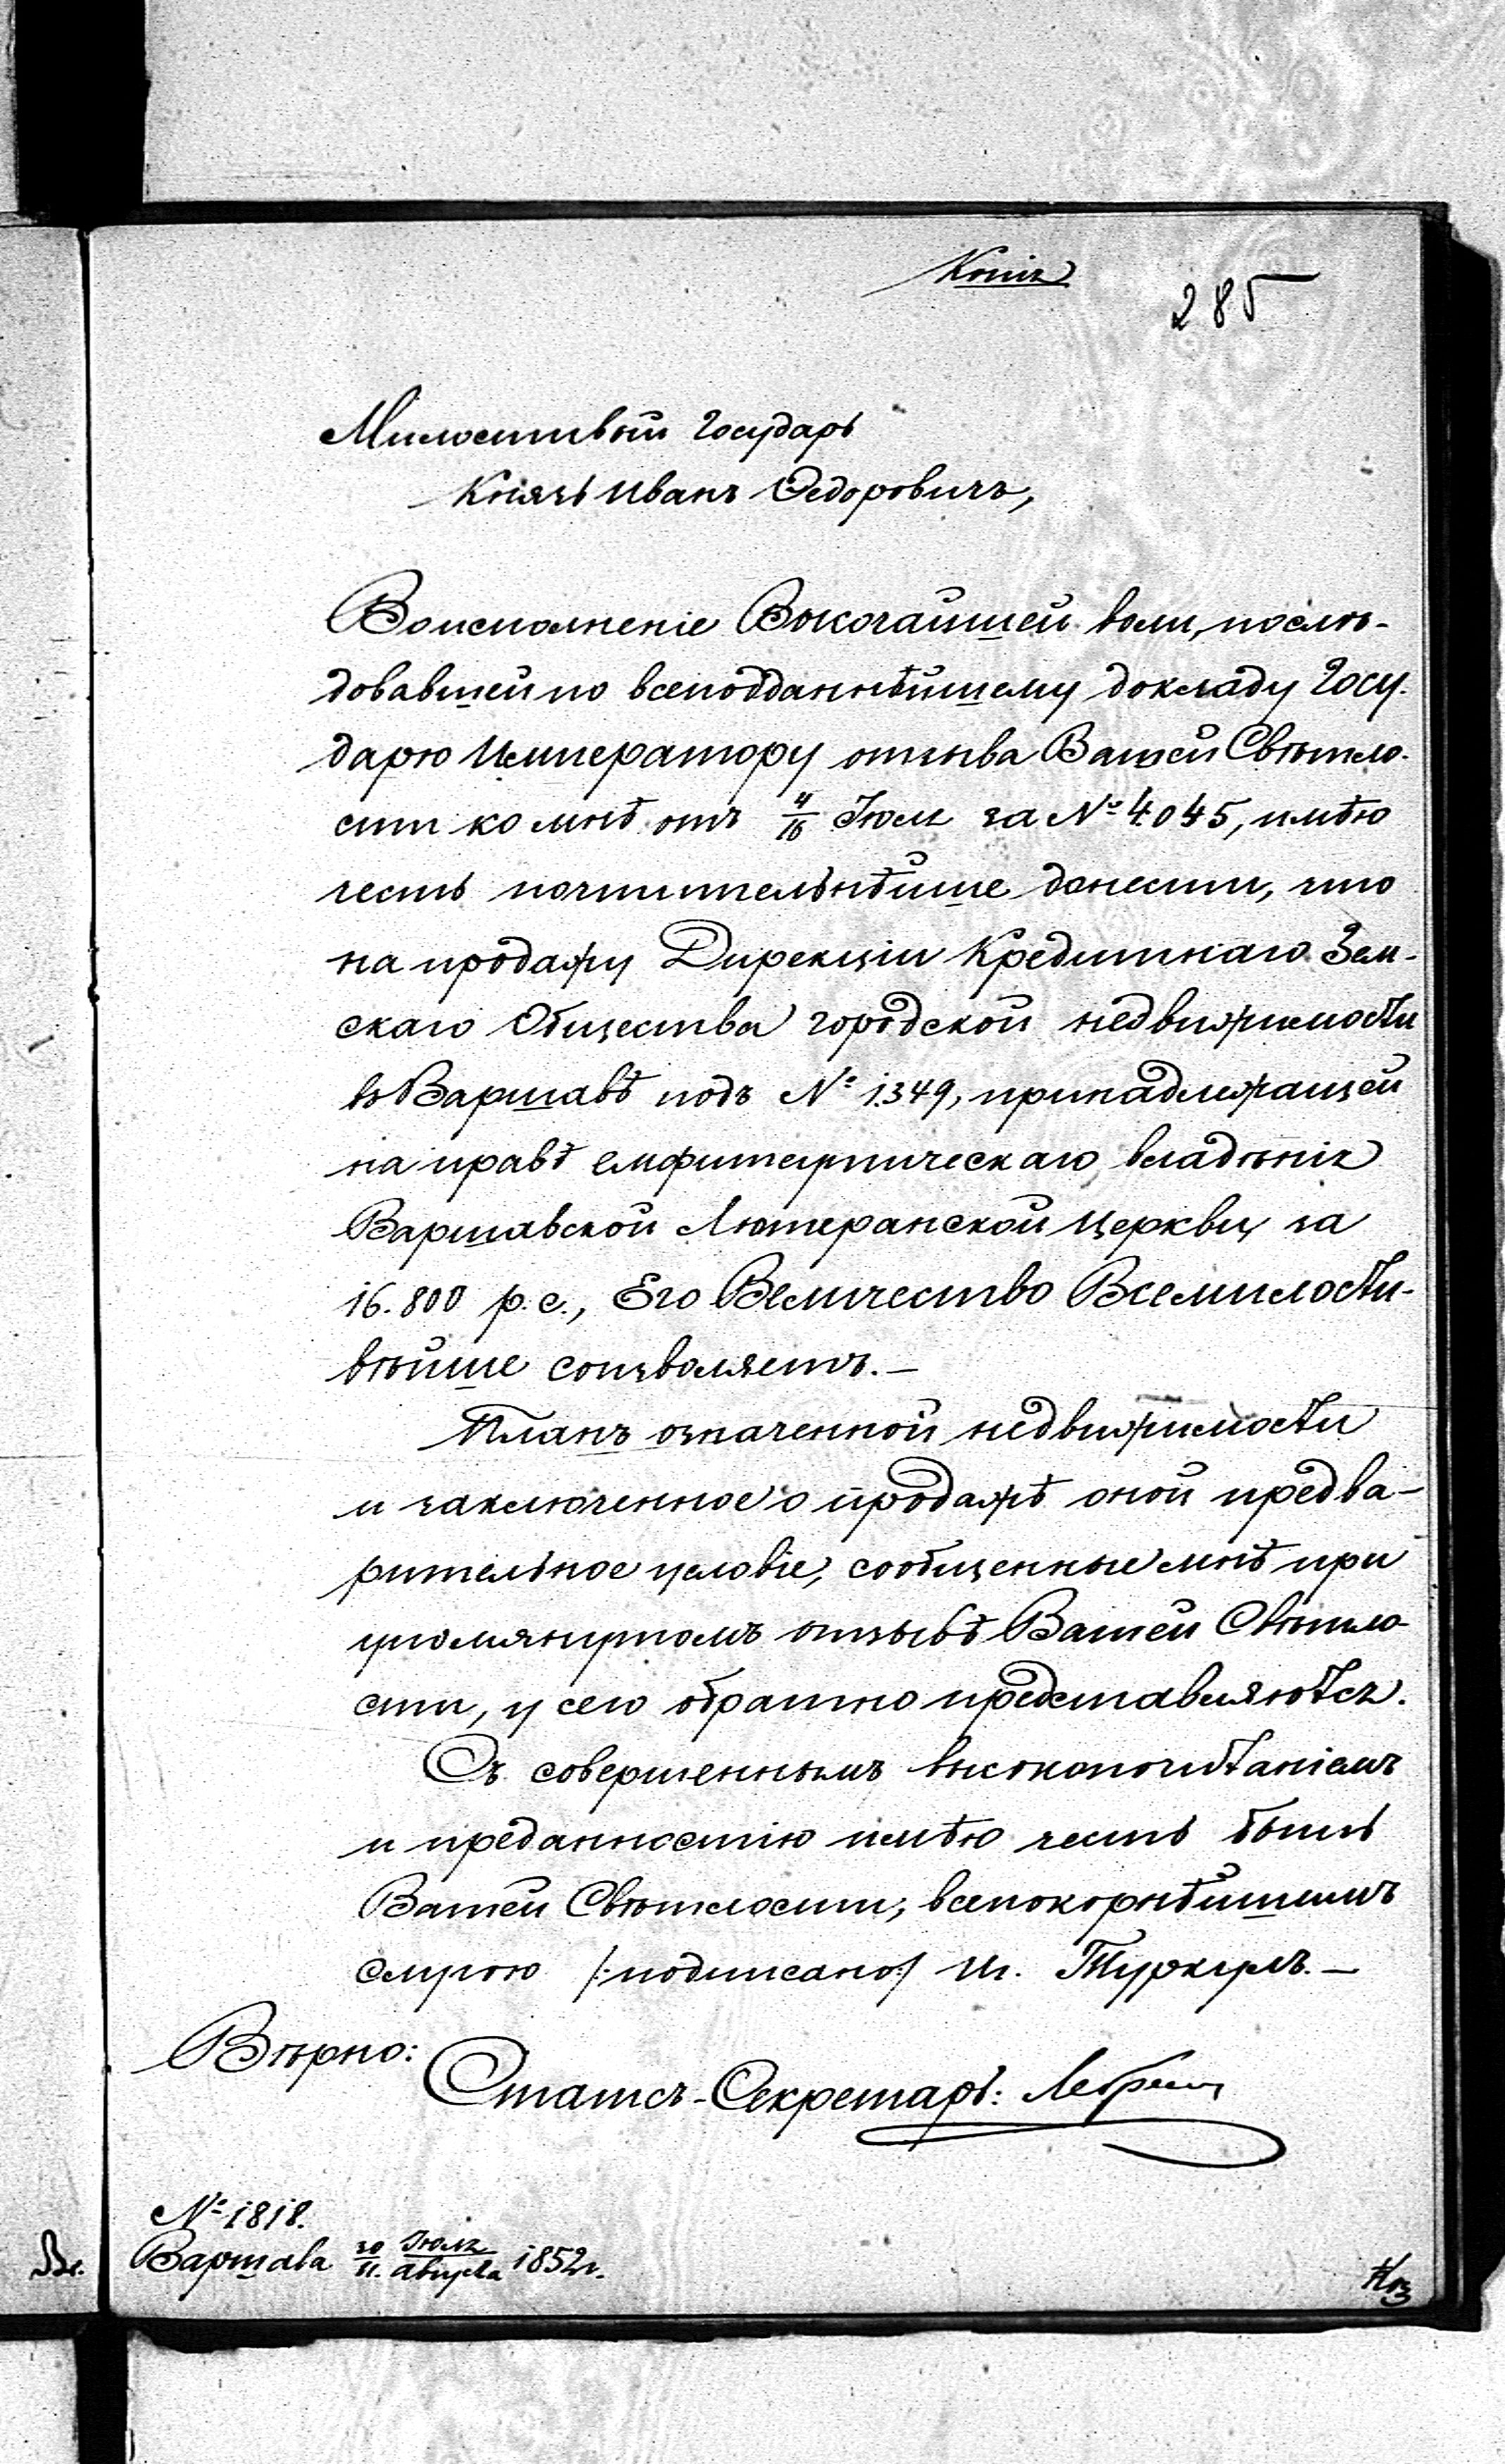 Копія
285
Милостивый Государь
Князь Иванъ Ѳедоровичъ,
Воисполненіе Высочайшей воли, послѣ-
довавшей по всеподданнѣйшему докладу Госу-
дарю Императору отзыва Вашей Свѣтло-
сти ко мнѣ отъ 4/16 Іюля за № 4045, имѣю
честь почтительнѣйше донести, что
на продажу Дирекціи Кредитнаго Зем-
скаго Общества городской недвижимости
въ Варшавѣ подъ № 1349, принадлежащей
на правѣ емфитеутическаго владѣнія
Варшавской Лютеранской Церкви, за
16.800 р. с., Его Величество Всемилости-
вѣйше соизволяетъ.—
Планъ означенной недвижимости
и заключенное о продажѣ оной предва-
рительное условіе, сообщенные мнѣ при
упомянутомъ отзывѣ Вашей Свѣтло-
сти, у сего обратно представляются.
Съ совершеннымъ высокопочитаніемъ
и преданностію имѣю честь быть
Вашей Свѣтлости, всепокорнѣйшимъ
слугою /:подписано:/ И. Туркулъ.—
Вѣрно:
Статсъ-Секретарь:
№ 1818.
Варшава 30/11 Іюля/Августа 1852 г.